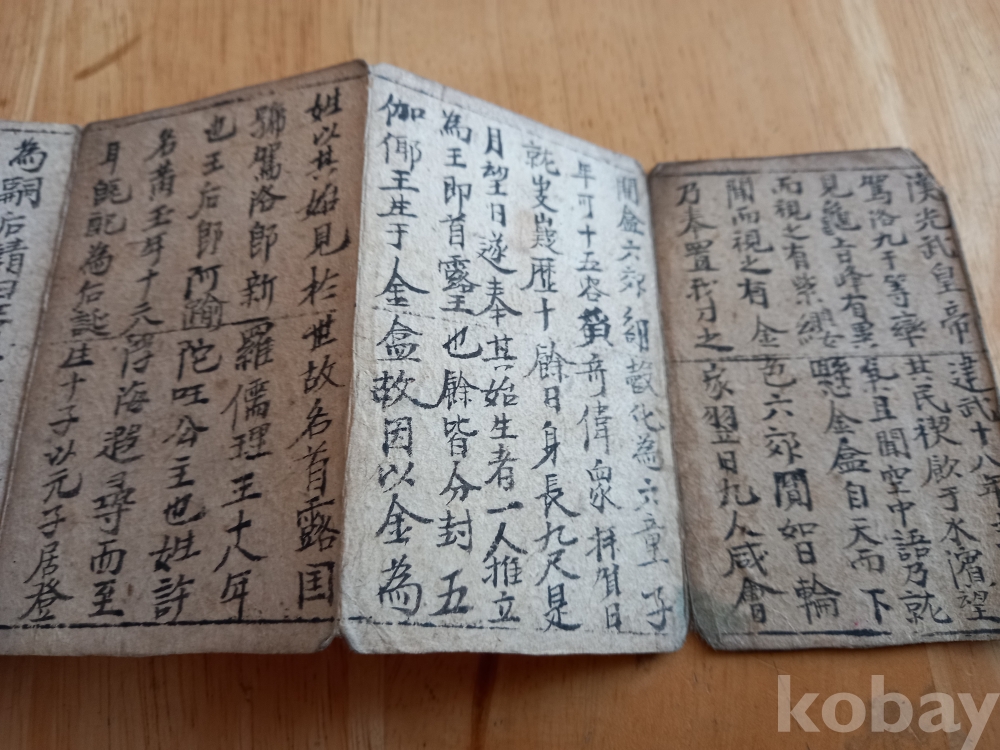 漢光武皇帝建武十八年
駕洛九干等率其民禊飮于水濱望
見龜旨峰有異氣且聞空中語乃就
而視之有紫纓懸金盒自天而下
開而視之有金色六卵圓如日輪
乃奉置我刀之家翌日九人咸會
開盒六卵剖殼化為六童子
年可十五容皃奇偉衆拜賀日
就岐嶷歷十餘日身長九尺是
月望日遂奉其始生者一人推立
為王即首露王也餘皆分封五
伽倻王生于金盒故因以金為
姓以其始見於世故名首露国
號駕洛即新羅儒理王十八年
也王后即阿踰陀国公主也姓許
名黄玉年十六浮海遐尋而至
耳記為后誕生十子以元子居登
為嗣后請
kobay